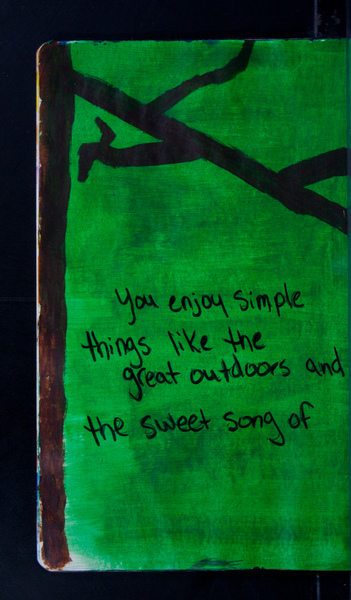 You enjoy simple
things like the
great outdoors and
the sweet song of